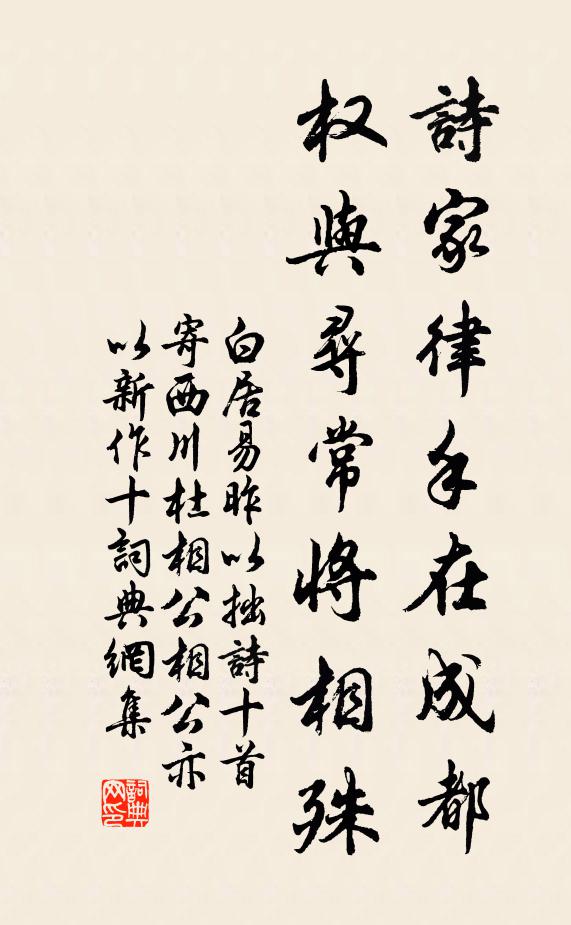 詩家律手在成都
权與尋常將相殊
白居易昨以拙詩十首
寄西川杜相公相公亦
以新作十詞典網集
詞典网印